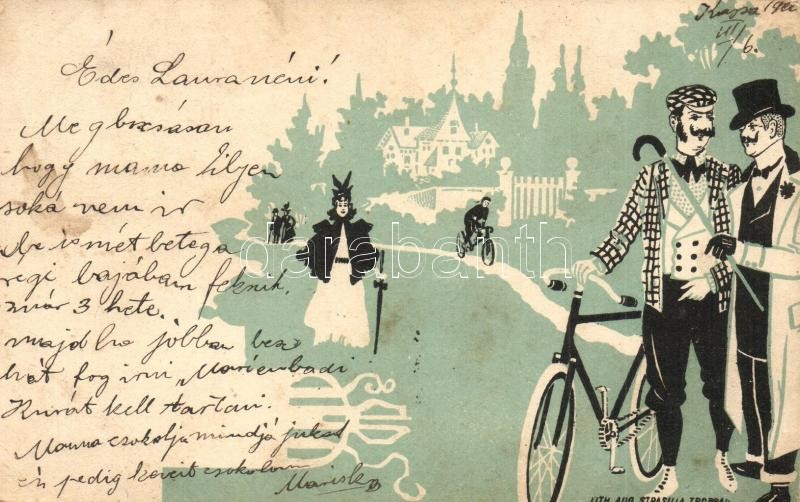 1900
III/6.
Édes Lauranéni!
Megbocsásson
hogy mama Ilyen
soká nem ir
de ismét betega
regi bajában fekszik.
már 3 hete.
majd ha jobban lesz
hát fog irni Marienbadi
Kurát kell tartani.
Mama csokolja mindjájukat
én pedig kezeit csokolom
Mariska
darabanth.com
LITH. AUG. STRASILLA TROPPAU